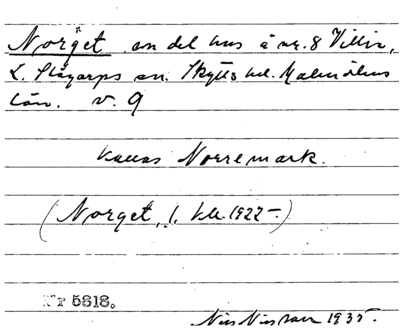 Norget en del hus å nr. 8 Villie,
L. Slågarps sn. Skytts hd. Malmöhus
län. v. 9
kallas Norremark.
(Norget, 1. kl. 1927-)
Nr 5818.
Nils Nilsson 1935.